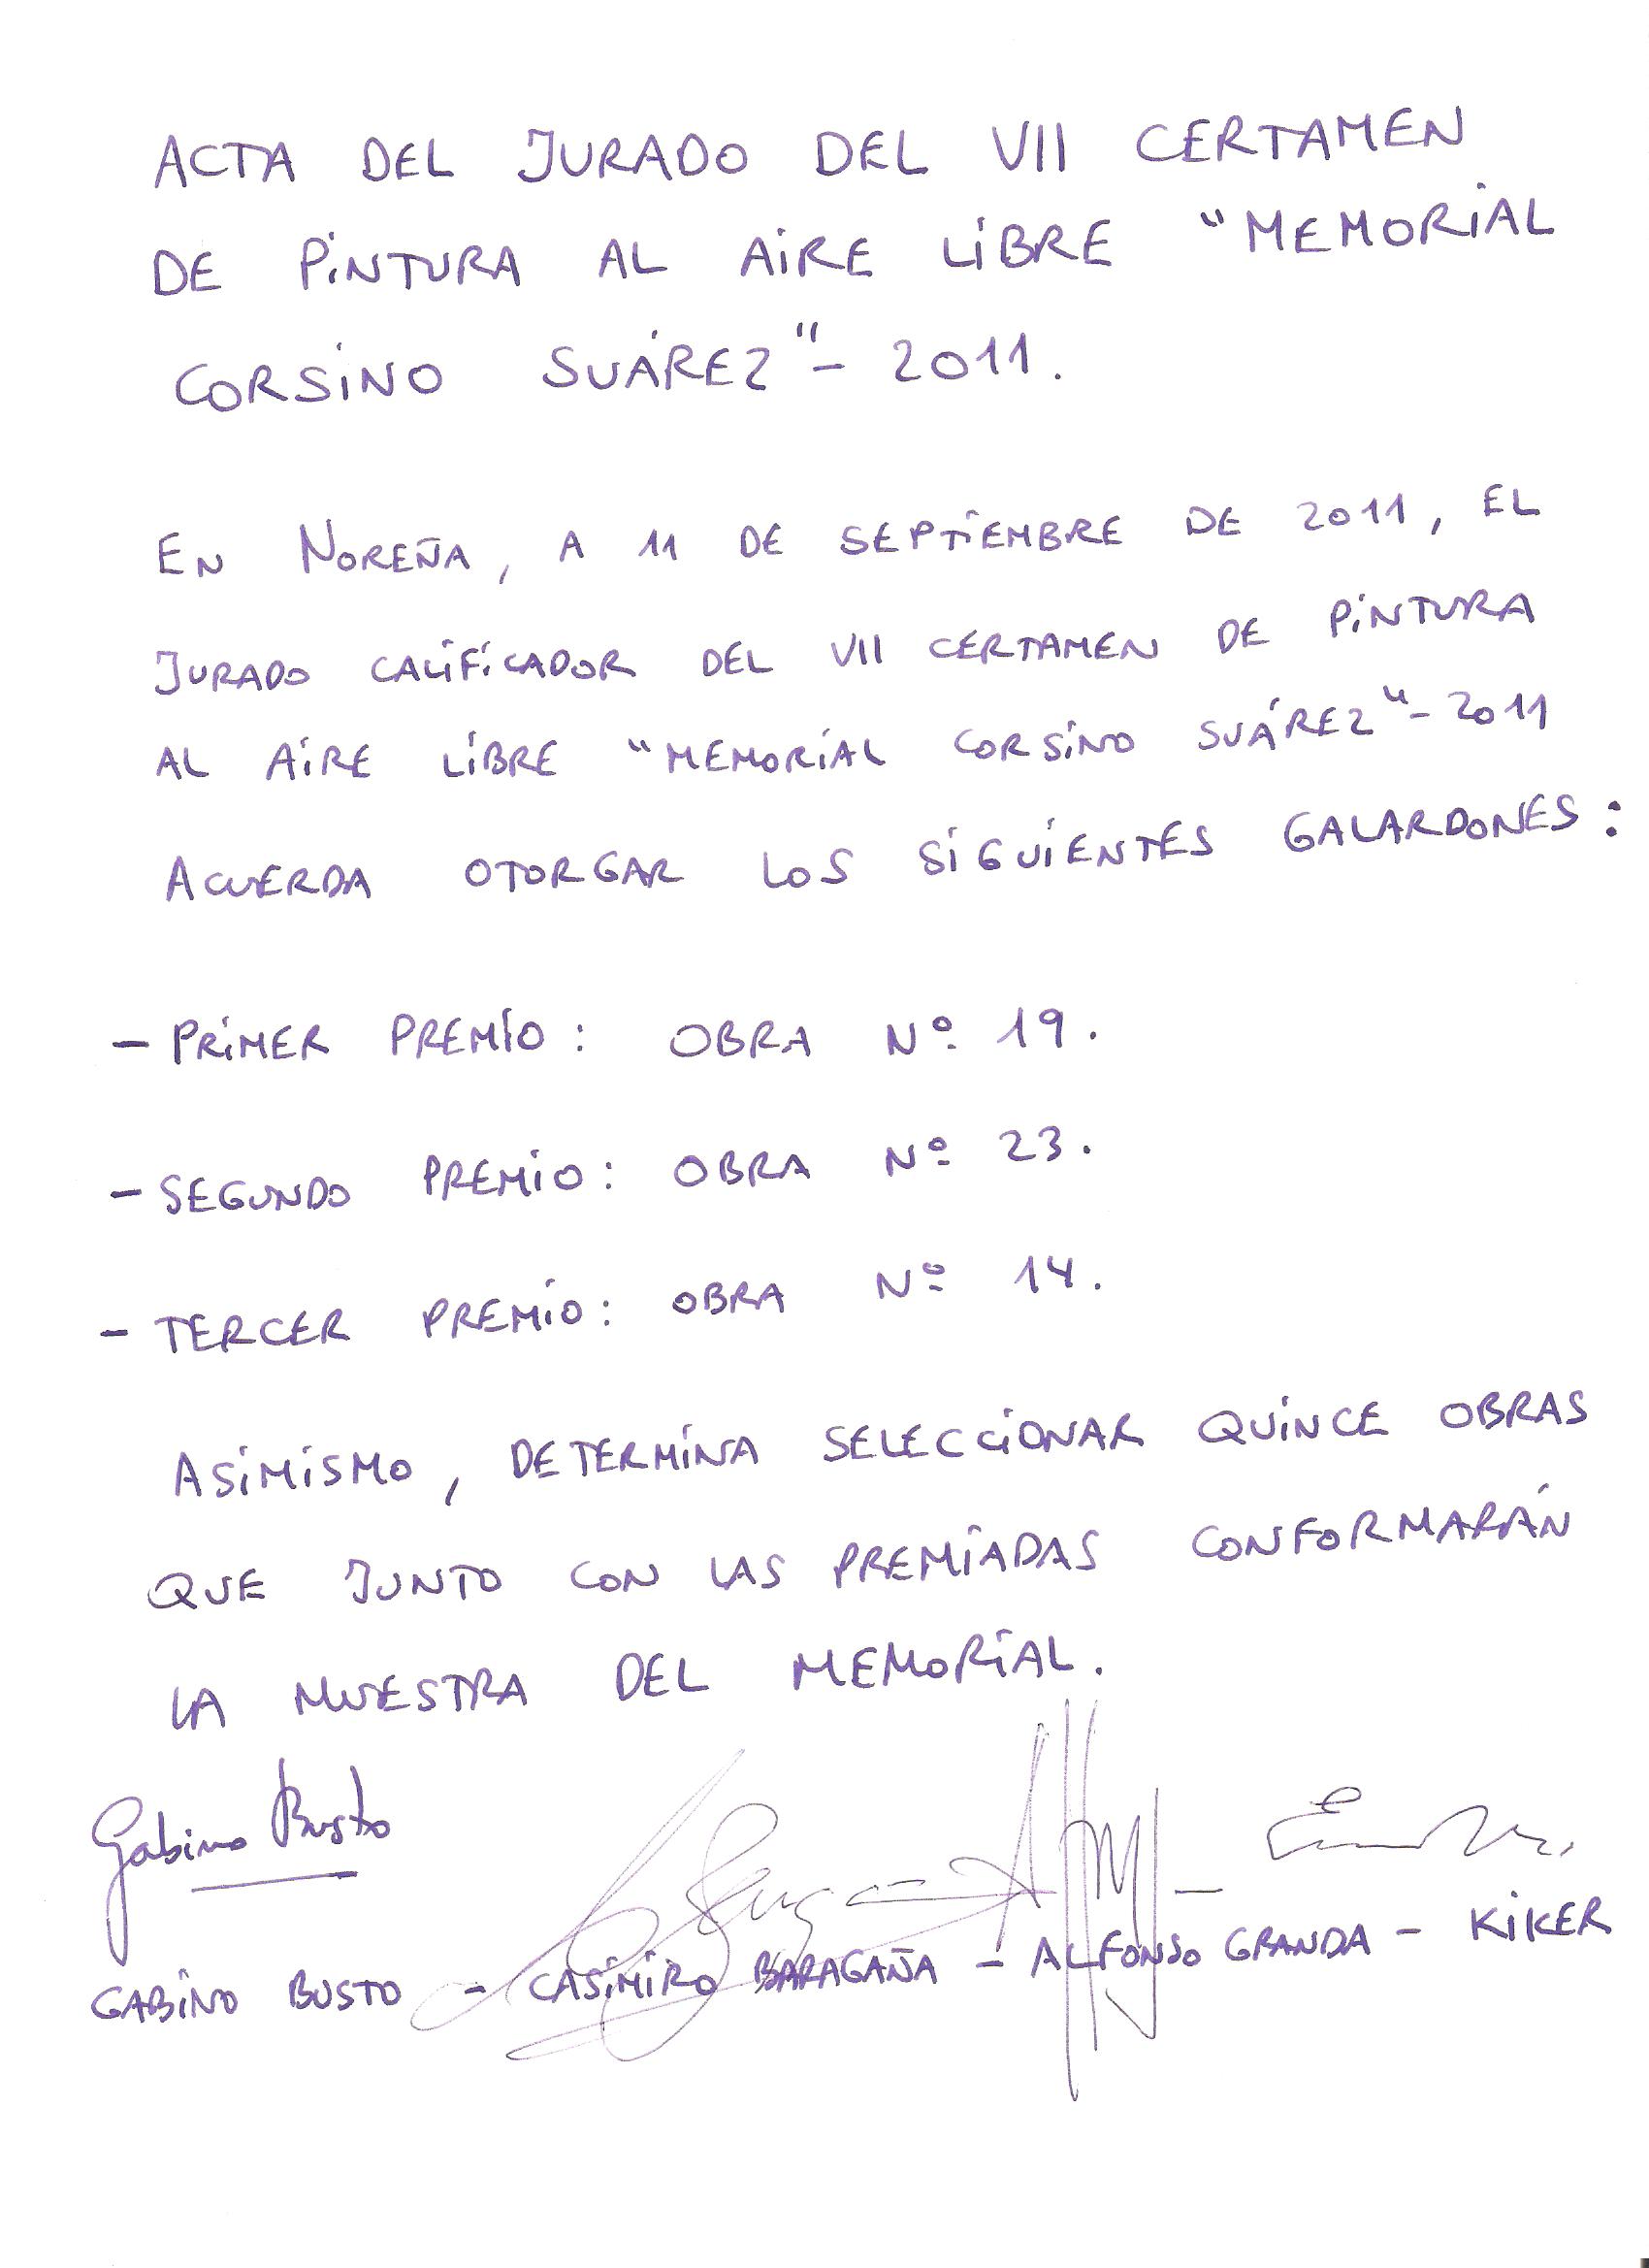 ACTA DEL JURADO DEL VII CERTAMEN
DE PINTURA AL AIRE LIBRE "MEMORIAL
CORSINO SUÁREZ"- 2011.
EN NOREÑA, A 11 DE SEPTIEMBRE DE 2011, EL
JURADO CALIFICADOR DEL VII CERTAMEN DE PINTURA
AL AIRE LIBRE "MEMORIAL CORSINO SUÁREZ"-2011
ACUERDA OTORGAR LOS SIGUIENTES GALARDONES:
- PRIMER PREMIO: OBRA Nº 19.
- SEGUNDO PREMIO: OBRA Nº 23.
- TERCER PREMIO: OBRA Nº 14.
ASIMISMO, DETERMINA SELECCIONAR QUINCE OBRAS
QUE JUNTO CON LAS PREMIADAS CONFORMARÁN
LA MUESTRA DEL MEMORIAL.
Gabino Busto
GABINO BUSTO - CASIMIRO BARAGAÑA - ALFONSO GRANDA - KIKER